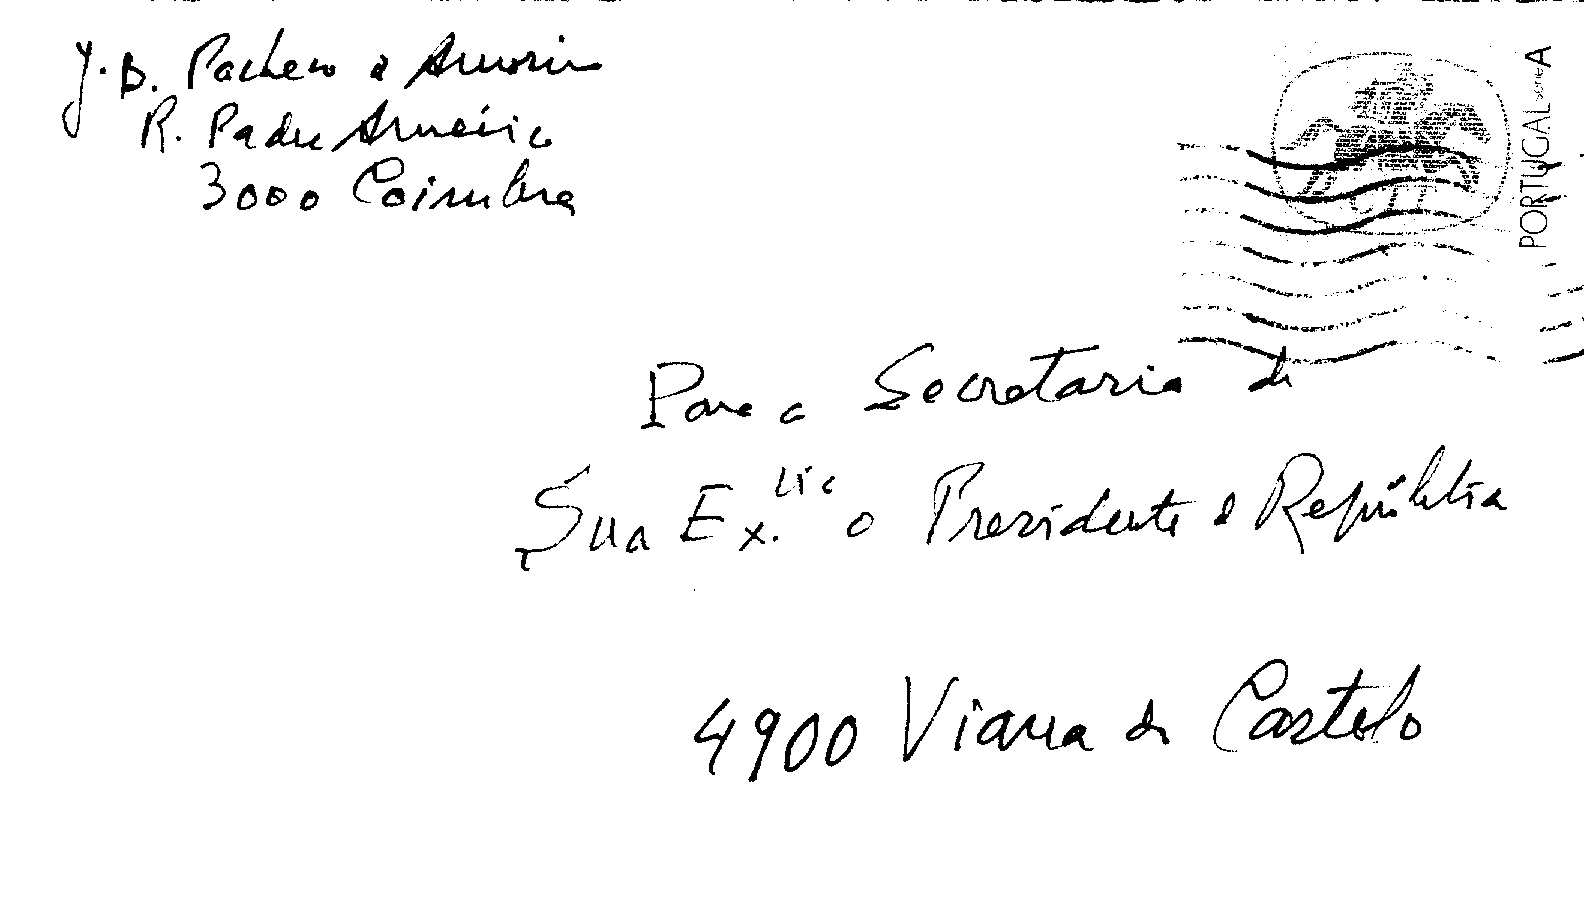 J. B. Pacheco d Amorim
R. Padre Américo
3000 Coimbra
PORTUGAL SÉRIE A
Para a Secretaria de
Sua Ex. cia o Presidente d República
4900 Viana do Castelo